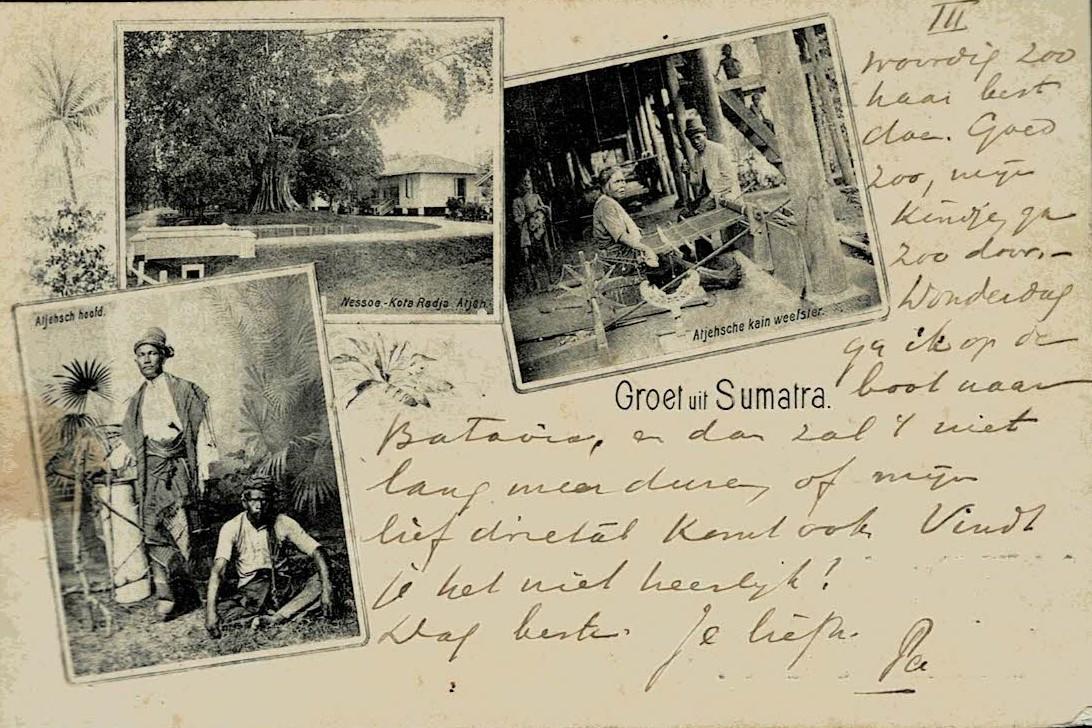 III
woordig zoo
haar best
doe. Goed
zoo, mijn
kindje, ga
zoo door. —
Donderdag
ga ik op de
boot naar
Batavia, en dan zal 't niet
lang meer duren, of mijn
lief drietal komt ook. Vindt
je het niet heerlijk!
Dag beste. Je liefh.
Pa
Nessoe.-Kota Radja Atjeh.
Atjehsche kain weefster.
Atjehsch hoofd.
Groet uit Sumatra.